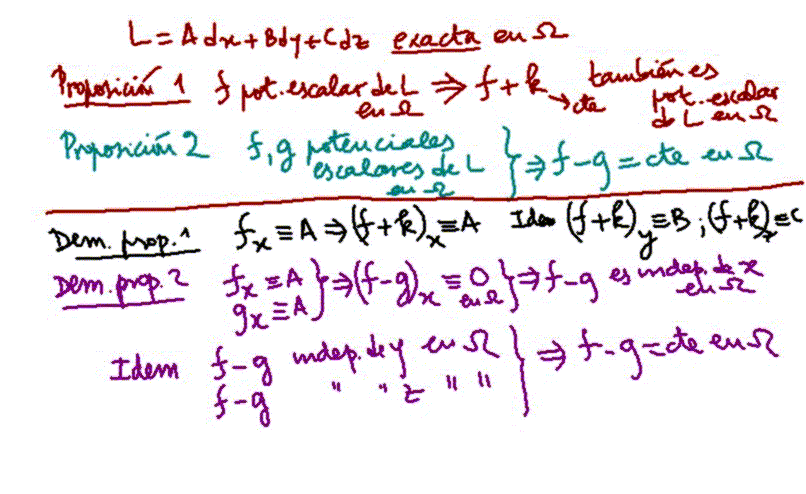 L = A dx + B dy + C dz exacta en Ω
Proposición 1 f pot. escalar de L en Ω ⇒ f + k → cte también es pot. escalar de L en Ω
Proposición 2 f, g potenciales escalares de L en Ω } ⇒ f - g = cte en Ω
Dem. prop. 1 fx ≡ A ⇒ (f+k)x ≡ A Idem (f+k)y ≡ B ; (f+k)z ≡ C
Dem. prop. 2 fx ≡ A
gx ≡ A } ⇒ (f-g)x ≡ 0 en Ω } ⇒ f - g es indep. de x en Ω
Idem f - g indep. de y en Ω
f - g " " z " " } ⇒ f - g = cte en Ω